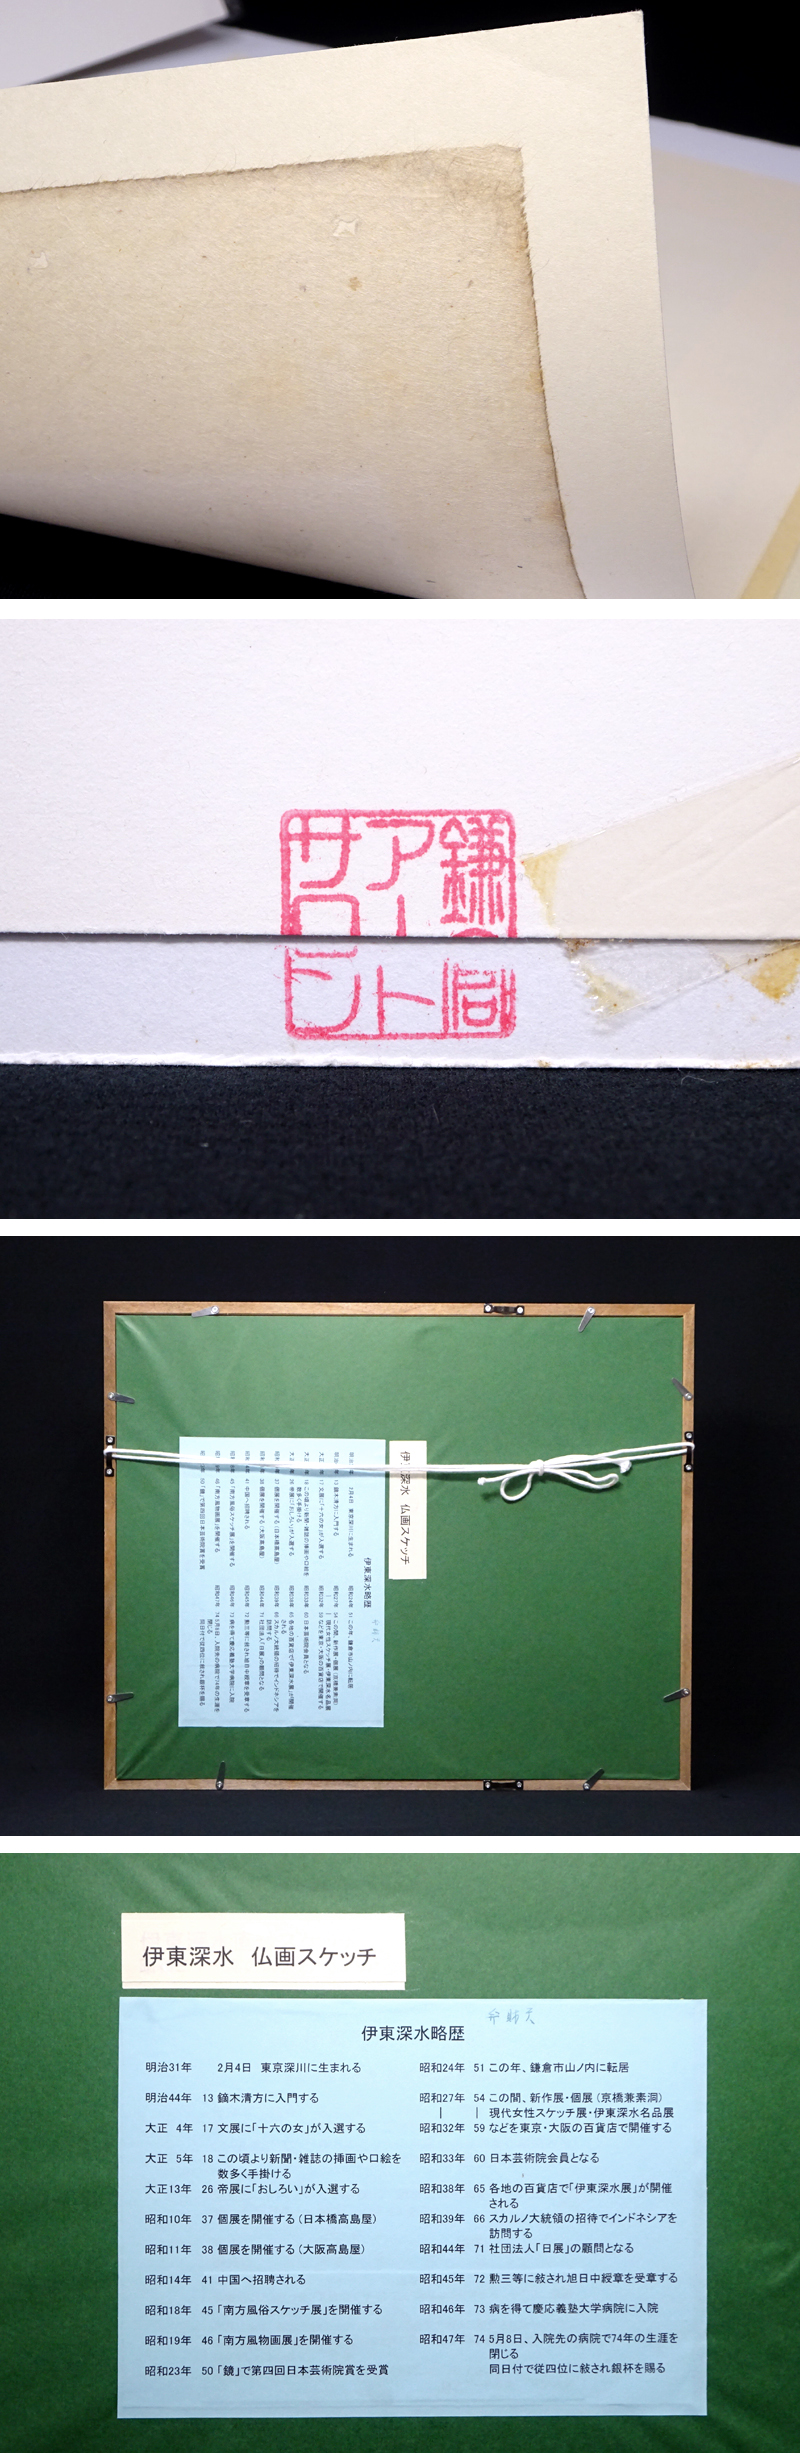 鎌倉
アート
サロン
伊東深水 仏画スケッチ
弁財天
伊東深水略歴
明治31年 2月4日 東京深川に生まれる
明治44年 13 鏑木清方に入門する
大正 4年 17 文展に「十六の女」が入選する
大正 5年 18 この頃より新聞・雑誌の挿画や口絵を
数多く手掛ける
大正13年 26 帝展に「おしろい」が入選する
昭和10年 37 個展を開催する(日本橋高島屋)
昭和11年 38 個展を開催する(大阪高島屋)
昭和14年 41 中国へ招聘される
昭和18年 45 「南方風俗スケッチ展」を開催する
昭和19年 46 「南方風物画展」を開催する
昭和23年 50 「鏡」で第四回日本芸術院賞を受賞
昭和24年 51 この年、鎌倉市山ノ内に転居
昭和27年 54 この間、新作展・個展(京橋兼素洞)
| | 現代女性スケッチ展・伊東深水名品展
昭和32年 59 などを東京・大阪の百貨店で開催する
昭和33年 60 日本芸術院会員となる
昭和38年 65 各地の百貨店で「伊東深水展」が開催
される
昭和39年 66 スカルノ大統領の招待でインドネシアを
訪問する
昭和44年 71 社団法人「日展」の顧問となる
昭和45年 72 勲三等に敍され旭日中綬章を受章する
昭和46年 73 病を得て慶応義塾大学病院に入院
昭和47年 74 5月8日、入院先の病院で74年の生涯を
閉じる
同日付で従四位に敍され銀杯を賜る